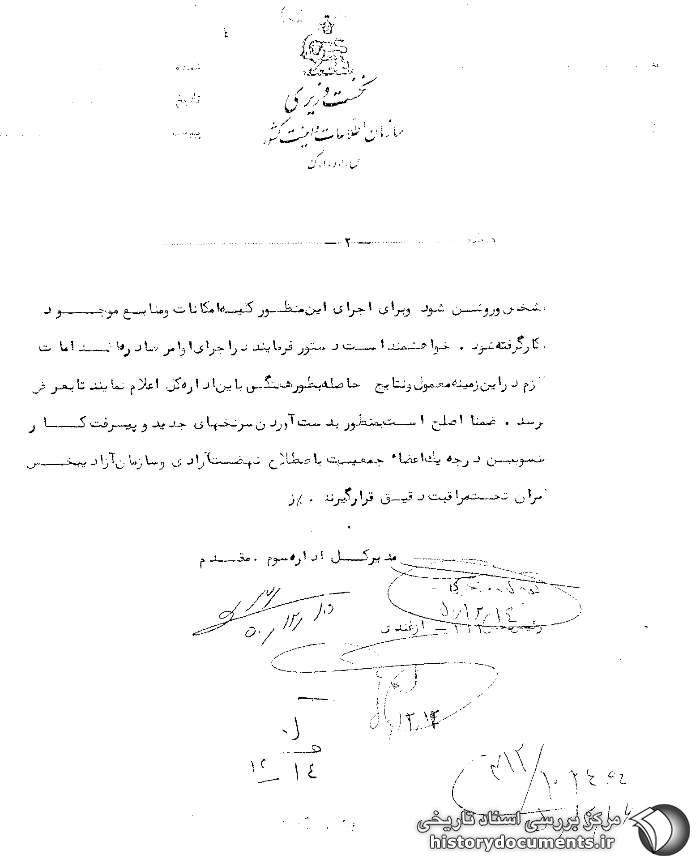 نخست وزیری
سازمان اطلاعات و امنیت کشور
شماره
تاریخ
پیوست
ـ ۲ ـ
مشخص و روشن شود و برای اجرای این منظور کلیه امکانات و منابع موجود
بکار گرفته شود . خواهشمند است دستور فرمایند در اجرای اوامر صادره اقدامات
لازم در این زمینه معمول و نتایج حاصله بطور هفتگی باین اداره کل اعلام نمایند تا بعرض
برسد . ضمنا اصلح است بمنظور بدست آوردن سرنخهای جدید و پیشرفت کار
منسوبین درجه یک اعضاء جمعیت باصطلاح نهضت آزادی و سازمان آزادیبخش
ایران تحت مراقبت دقیق قرار گیرند . /ز
مدیر کل اداره سوم . مقدم
۵۰/۱۲/۱۴
ازغندی
۵۰/۱۲/۱۰
۱۲/۱۴
۱۴
۱۲
۳۱۲/
مرکز بررسی اسناد تاریخی
historydocuments.ir